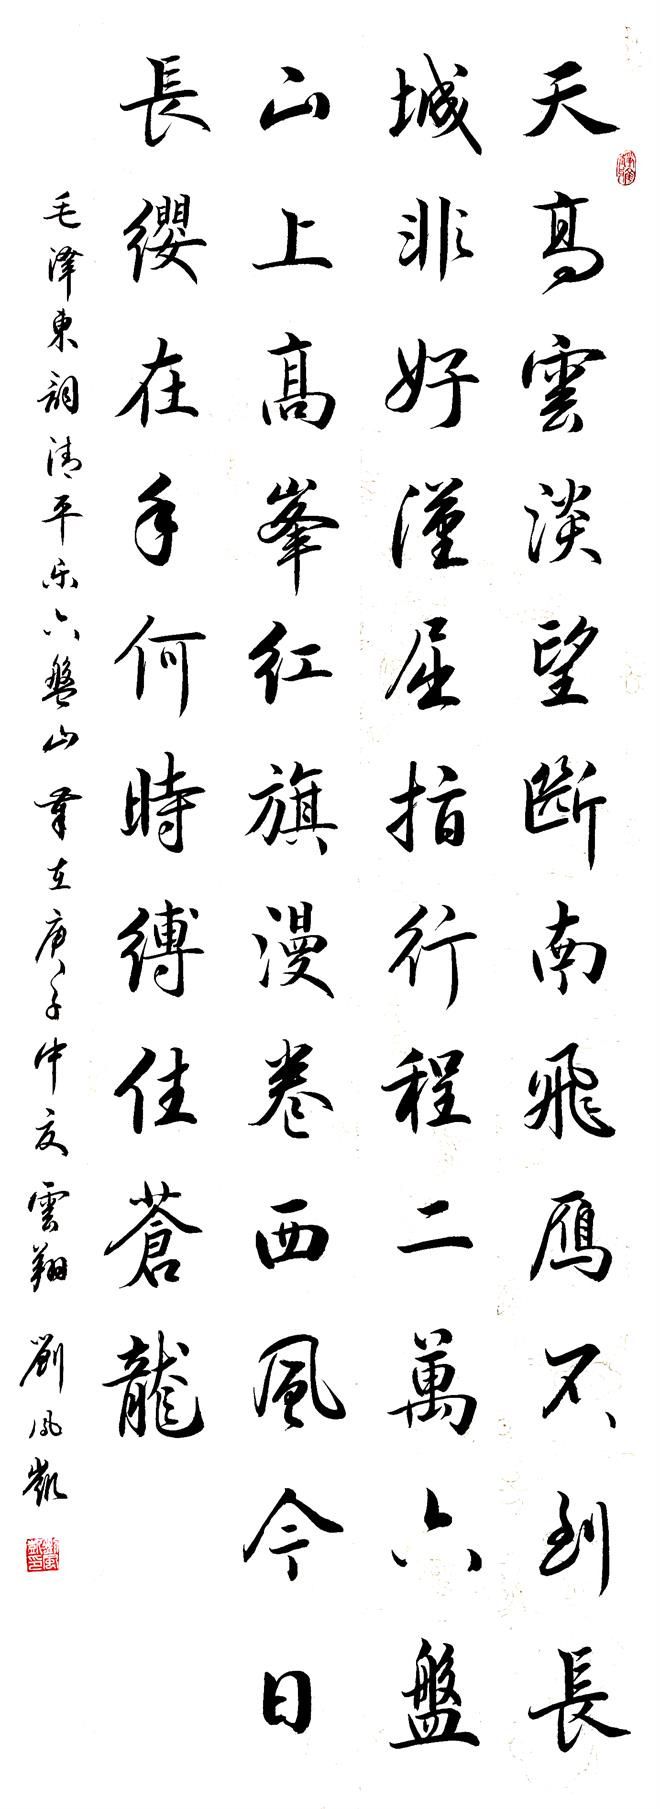 天高雲淡望斷南飛雁不到長
城非好漢屈指行程二萬六盤
山上高峯紅旗漫卷西風今日
長纓在手何時縛住蒼龍
毛澤東詞清平乐六盤山 筆在庚子仲夏雲翔 劉鳳凱